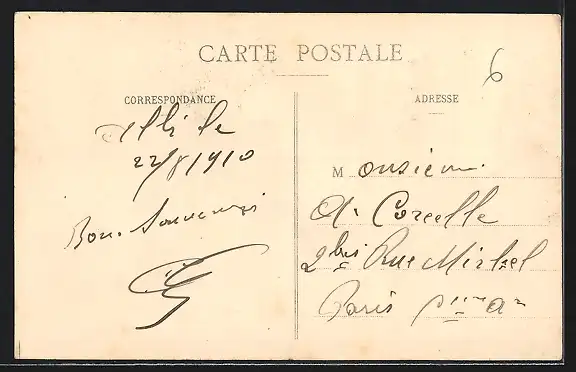 CARTE POSTALE
6
CORRESPONDANCE
ADRESSE
le
22/8/1910
Bons Souvenirs
Monsieur
A. Corcelle
2 bis Rue Mirbel
Paris